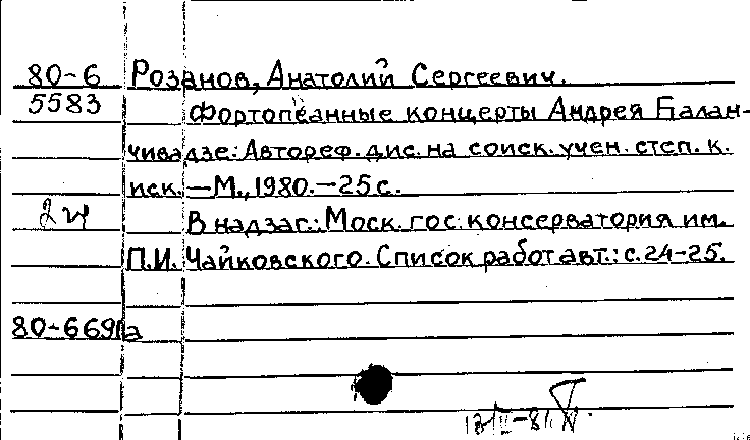 80-6 Розанов, Анатолий Сергеевич.
5583 Фортопеанные концерты Андрея Балан-
чивадзе: Автореф. дис. на соиск. учен. степ. к.
иск. — М., 1980. — 25 с.
В надзаг.: Моск. гос. консерватория им.
П.И. Чайковского. Список работ авт.: с. 24-25.